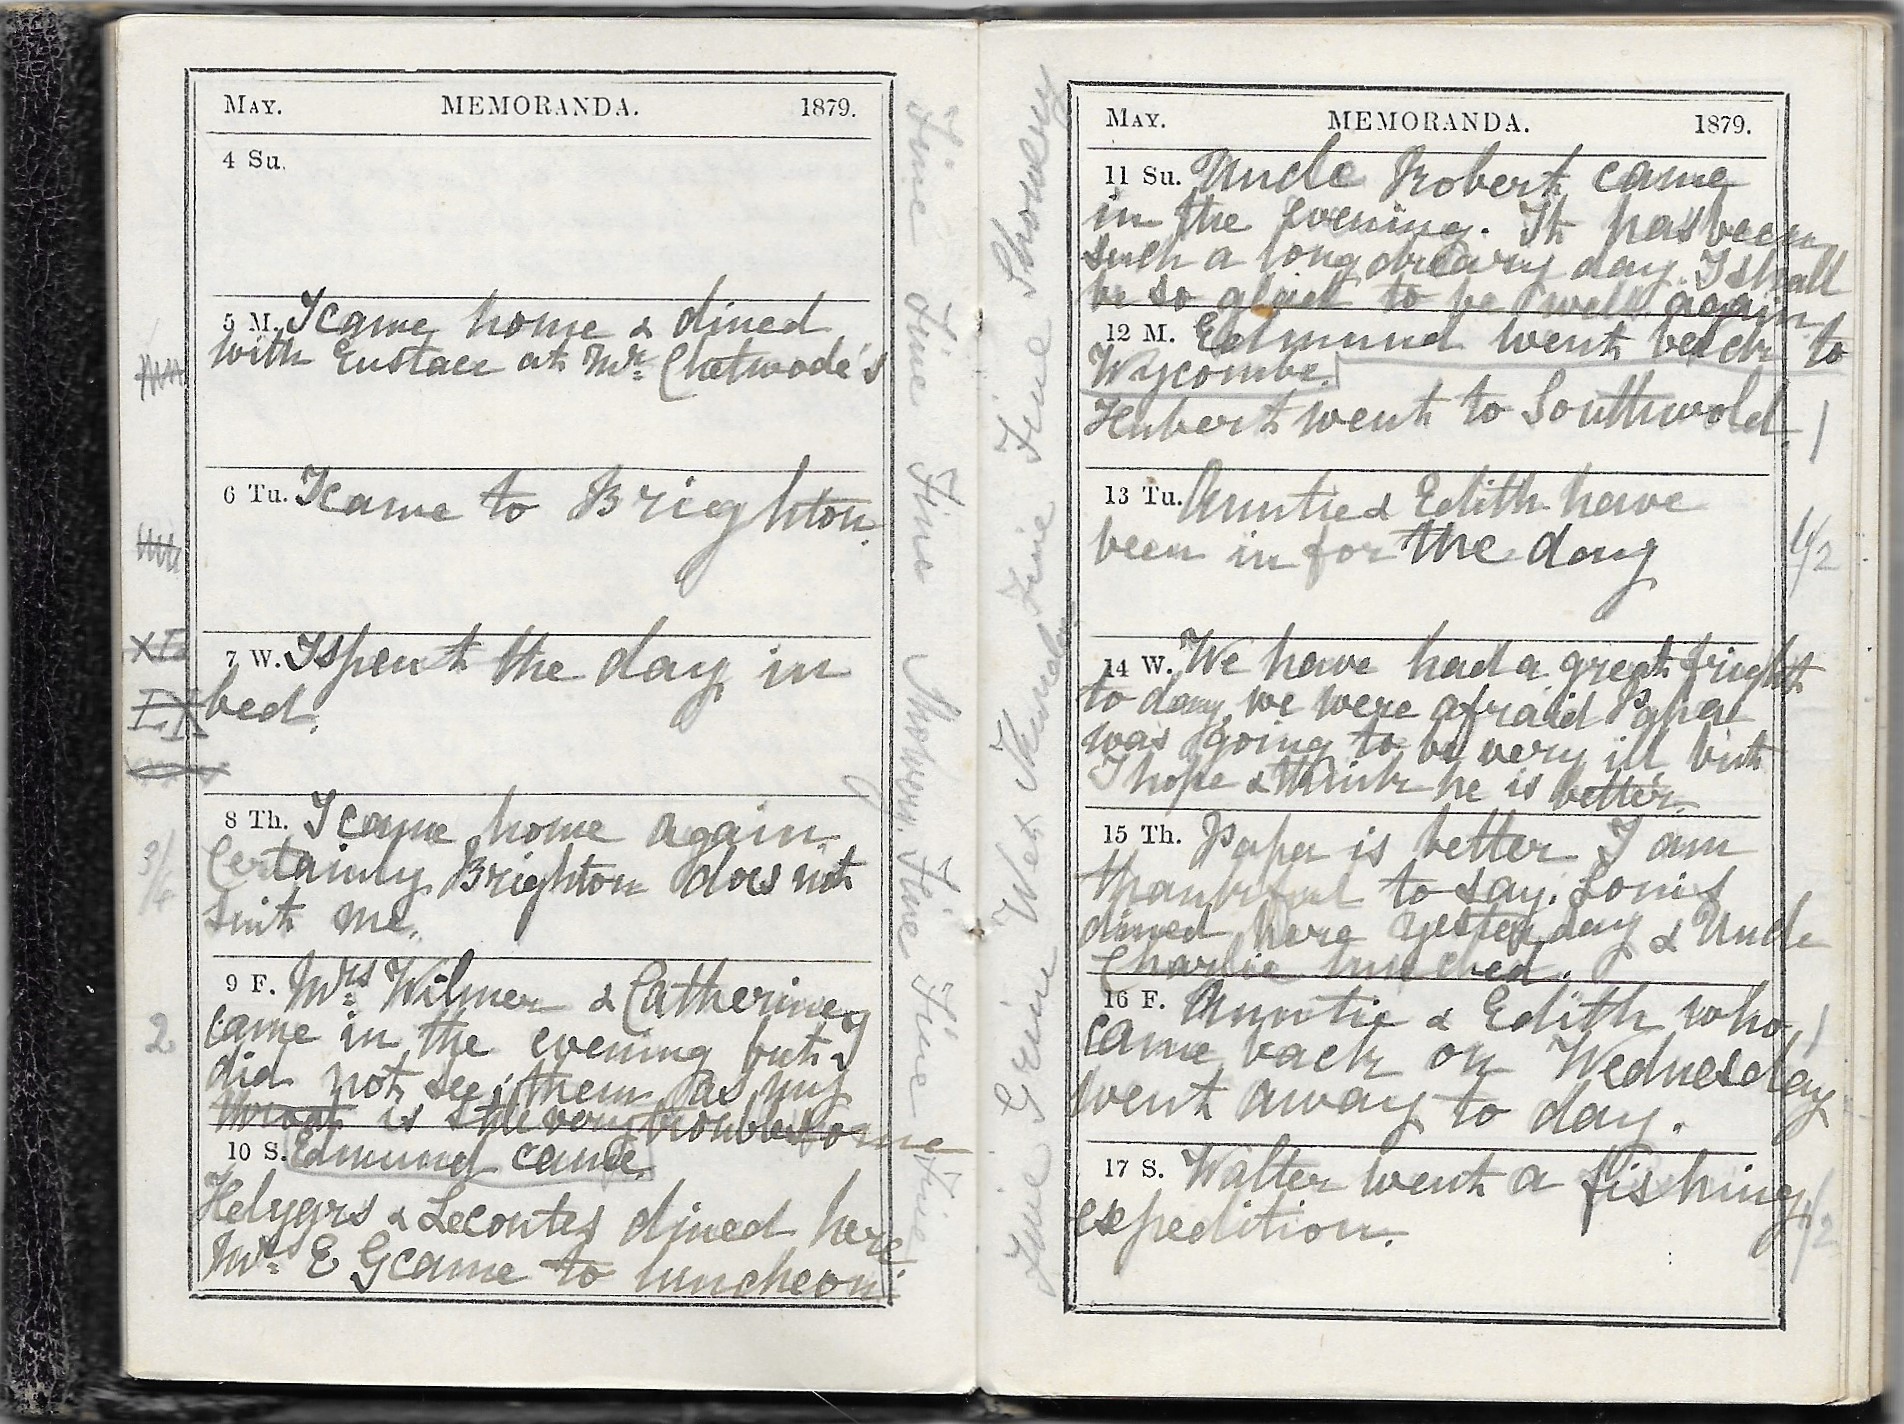 MAY. MEMORANDA. 1879.
4 Su.
5 M. I came home & dined
with Eustace at Mr. Chetwode's
6 Tu. I came to Brighton.
7 W. I spent the day in
bed.
8 Th. I came home again.
Certainly Brighton does not
suit me.
9 F. Mrs. Wilmer & Catherine
came in the evening but I
did not see them as my
throat is still very troublesome
10 S. Edmund came.
Helyars & Lecontes dined here
Mrs. E G came to luncheon.
3/4
2
Fine Fine Fine Fine Showers. Fine Fine Fine
MAY. MEMORANDA. 1879.
11 Su. Uncle Robert came
in the evening. It has been
such a long dreary day. I shall
be so glad to be well again.
12 M. Edmund went back to
Wycombe.
Hubert went to Southwold.
13 Tu. Auntie & Edith have
been in for the day
14 W. We have had a great fright
to day, we were afraid Papa
was going to be very ill but
I hope & think he is better.
15 Th. Papa is better I am
thankful to say. Louis
dined here yesterday & Uncle
Charlie lunched.
16 F. Auntie & Edith who
came back on Wednesday
went away to day.
17 S. Walter went a fishing
expedition.
1
1/2
1
1/2
Fine Fine Wet Fine Fine Showery